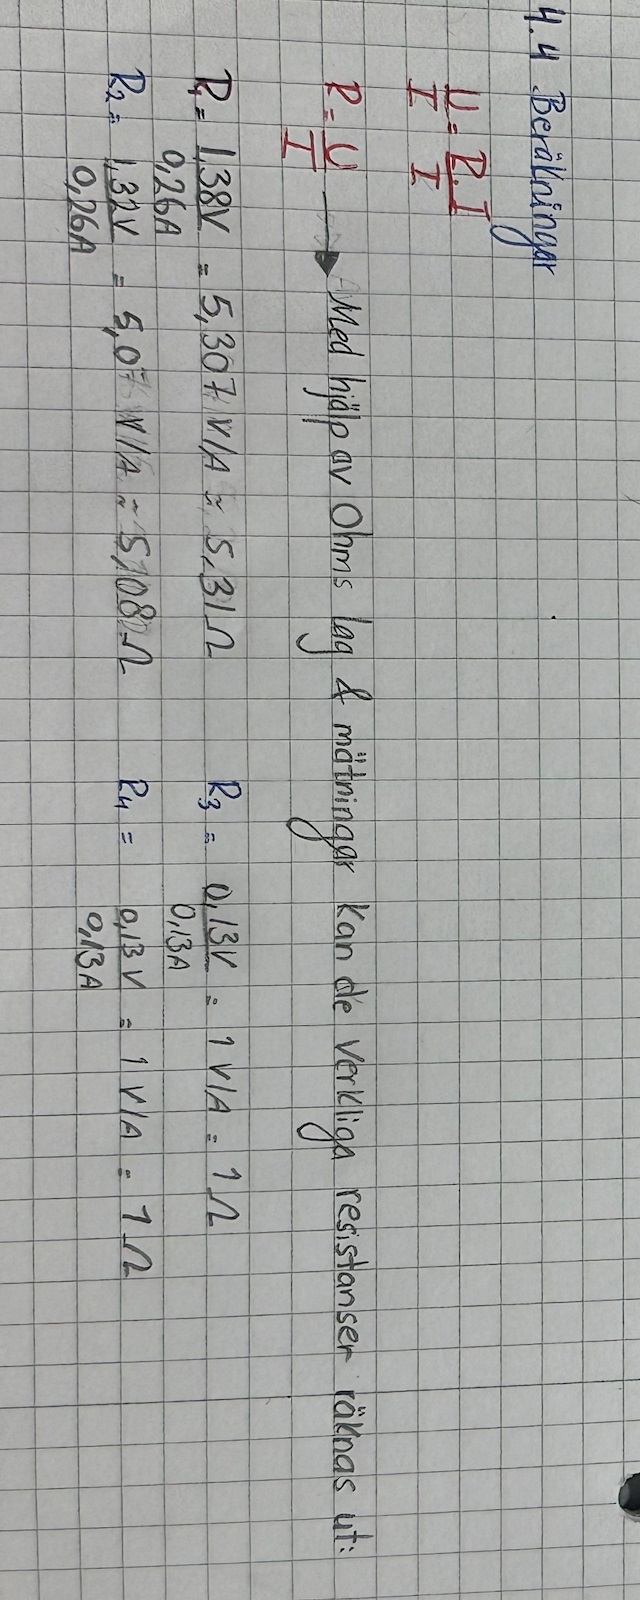 4.4 Beräkningar
U/I = R·I/I
R = U/I → Med hjälp av Ohms lag & mätningar kan de verkliga resistanser räknas ut:
R₁ = 1,38V/0,26A = 5,307 V/A ≈ 5,31 Ω
R₃ = 0,13V/0,13A = 1 V/A = 1 Ω
R₂ = 1,32V/0,26A = 5,07 V/A ≈ 5,08 Ω
R₄ = 0,13V/0,13A = 1 V/A = 1 Ω